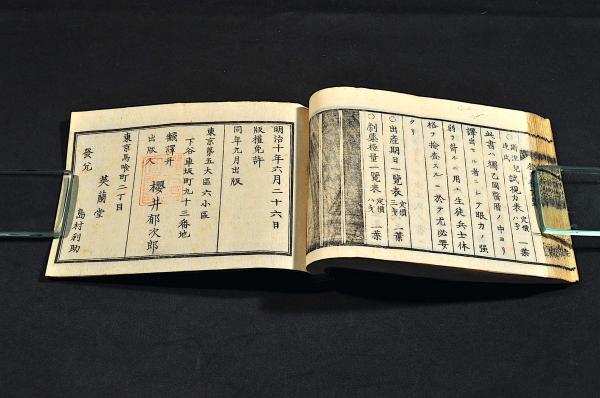 試視力表 定價 八戔 一葉
此書ハ獨乙國醫
譯出セル者ニシテ眼力ノ強
弱ヲ計ルニ用エ生徒兵士体
格ヲ檢査スルニ於テ尤必要
ナリ
○出產期日一覽表 定價 三戔 一葉
○劇藥極量一覽表 定價 八戔 一葉
明治十年六月二十六日
版權免許
同年九月出版
東京第五大區六小區
下谷車坂町九十三番地
飜譯并
出版人 櫻井郁次郎
東京馬喰町二丁目
發兌 英蘭堂
島村利助